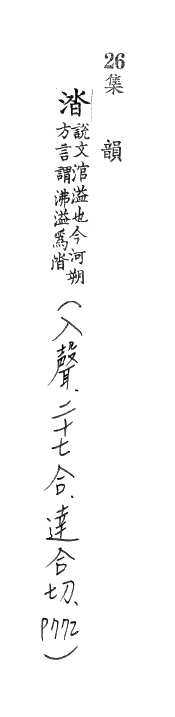 26集韻
沯說文涫溢也今河朔
方言謂沸溢爲沯
（入聲、二十七合、達合切、P772）